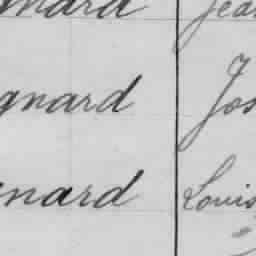 gnard Jea
gnard Jos
gnard Louis